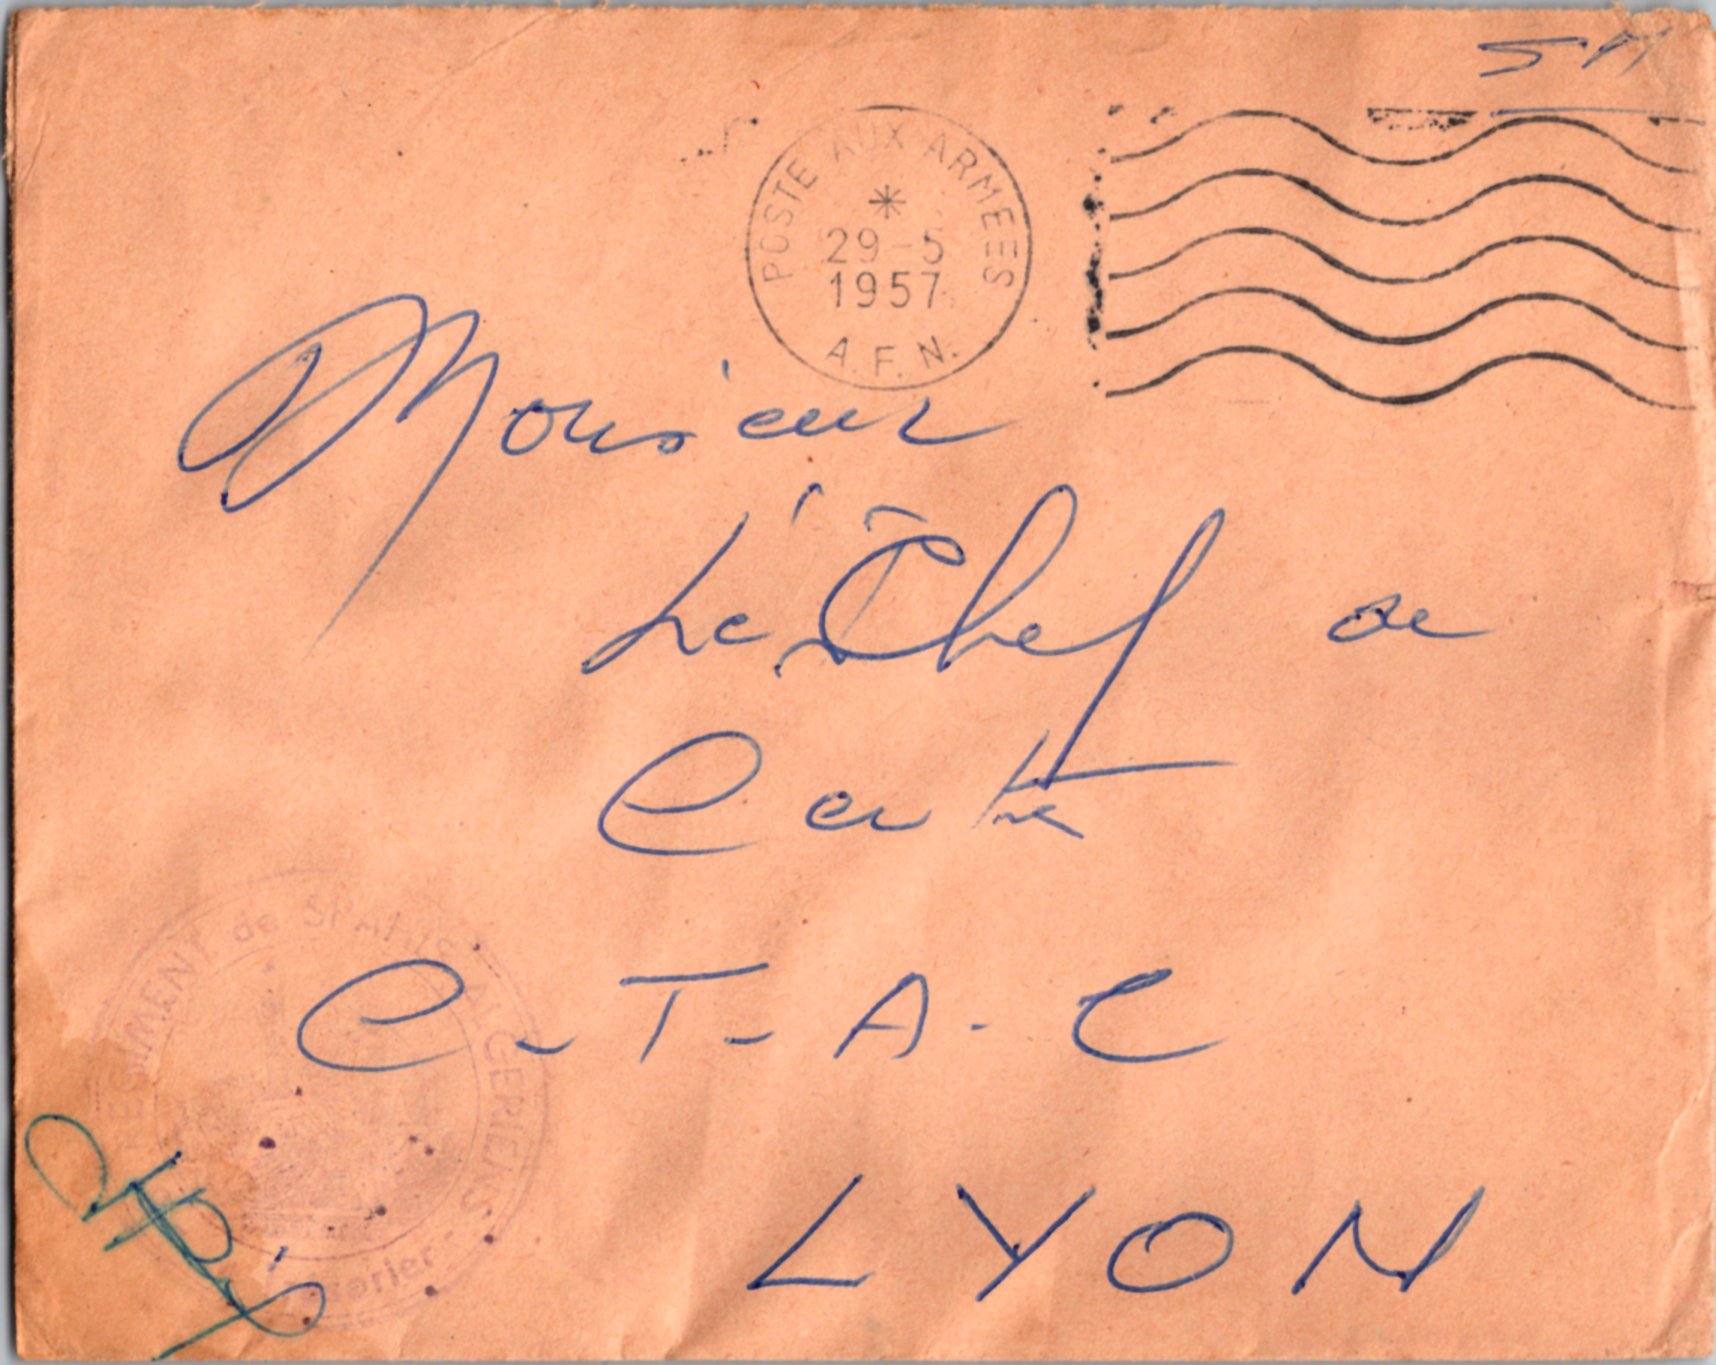 5M
POSTE AUX ARMEES
29-5
1957
A.F.N.
Monsieur
Le Chef de
Centre
C-T-A-C
LYON
REGIMENT de SPAHIS ALGERIENS